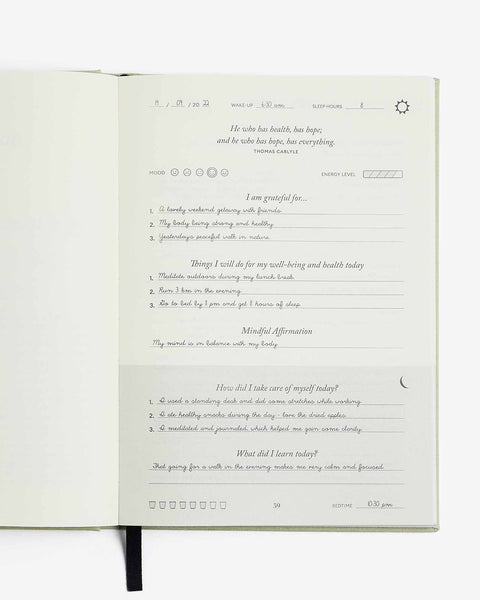 19 / 09 / 20 22 WAKE-UP 6:30 am SLEEP-HOURS 8
He who has health, has hope;
and he who has hope, has everything.
THOMAS CARLYLE
MOOD ENERGY LEVEL
I am grateful for...
1. A lovely weekend getaway with friends
2. My body being strong and healthy
3. Yesterdays peaceful walk in nature
Things I will do for my well-being and health today
1. Meditate outdoors during my lunch break
2. Run 3 km in the evening
3. Go to bed by 9 pm and get 8 hours of sleep
Mindful Affirmation
My mind is in balance with my body
How did I take care of myself today?
1. I used a standing desk and did some stretches while working
2. I ate healthy snacks during the day - love the dried apples
3. I meditated and journaled which helped me gain some clarity
What did I learn today?
That going for a walk in the evening makes me very calm and focused
59 BEDTIME 10:30 pm